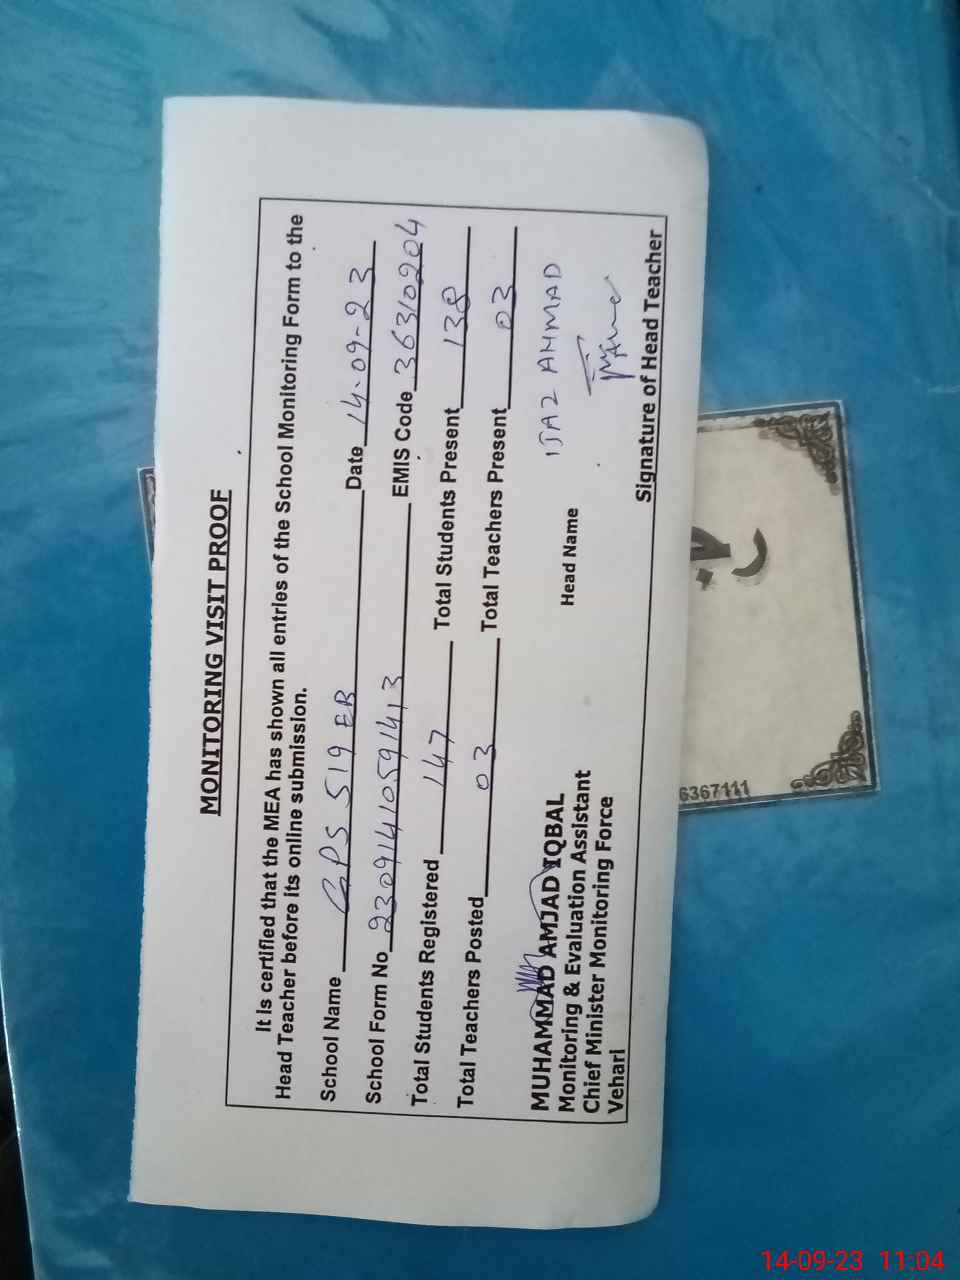 MONITORING VISIT PROOF
It is certified that the MEA has shown all entries of the School Monitoring Form to the
Head Teacher before its online submission.
School Name GPS 519 EB Date 14-09-23
School Form No 23091410591413 EMIS Code 36310204
Total Students Registered 147 Total Students Present 138
Total Teachers Posted 03 Total Teachers Present 03
MUHAMMAD AMJAD IQBAL
Monitoring & Evaluation Assistant
Chief Minister Monitoring Force
Vehari
Head Name IJAZ AHMAD
Signature of Head Teacher
6367111
14-09-23 11:04